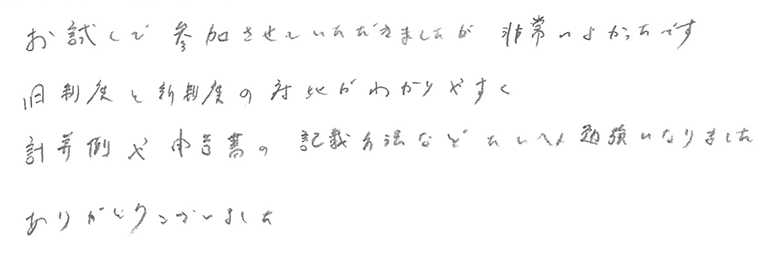 お試しで参加させていただきましたが 非常によかったです
旧制度と新制度の対比がわかりやすく
計算例や申告書の記載方法などたいへん勉強になりました
ありがとうございました